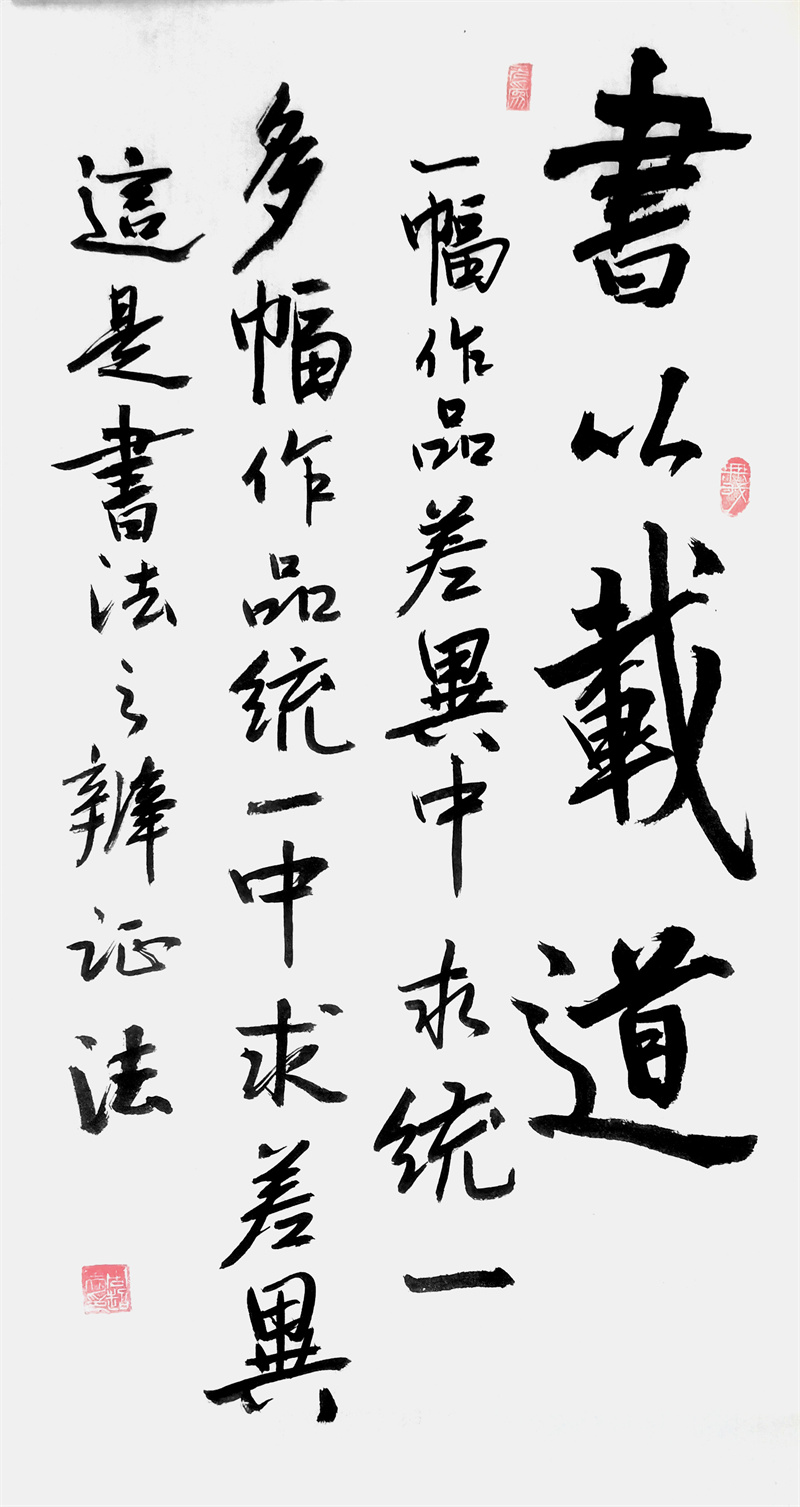 書以載道
一幅作品差異中求統一
多幅作品統一中求差異
這是書法之辯证法